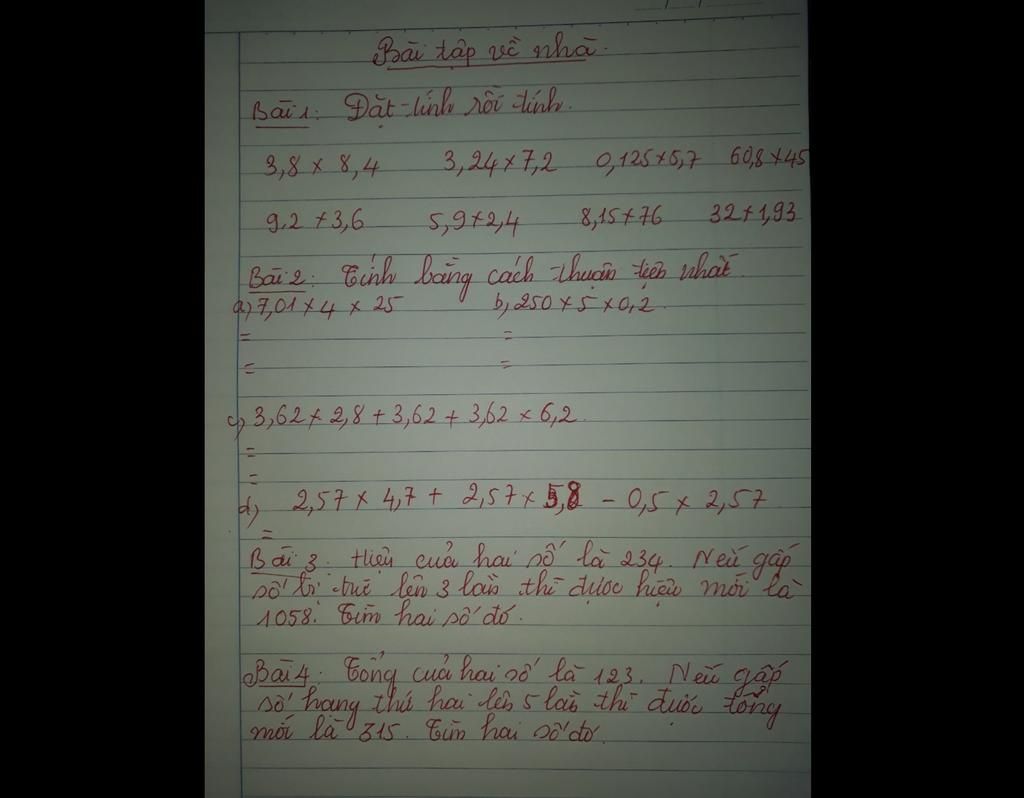 Bài tập về nhà.
Bài 1: Đặt tính rồi tính.
3,8 × 8,4 3,24 × 7,2 0,125 × 5,7 60,8 × 45
9,2 × 3,6 5,9 × 2,4 8,15 × 76 32 × 1,93
Bài 2: Tính bằng cách thuận tiện nhất
a, 7,01 × 4 × 25 b, 250 × 5 × 0,2
= =
= =
c, 3,62 × 2,8 + 3,62 + 3,62 × 6,2
=
=
d, 2,57 × 4,7 + 2,57 × 5,8 - 0,5 × 2,57
=
Bài 3. Hiệu của hai số là 234. Nếu gấp
số bị trừ lên 3 lần thì được hiệu mới là
1058. Tìm hai số đó.
Bài 4: Tổng của hai số là 123. Nếu gấp
số hạng thứ hai lên 5 lần thì được tổng
mới là 315. Tìm hai số đó.